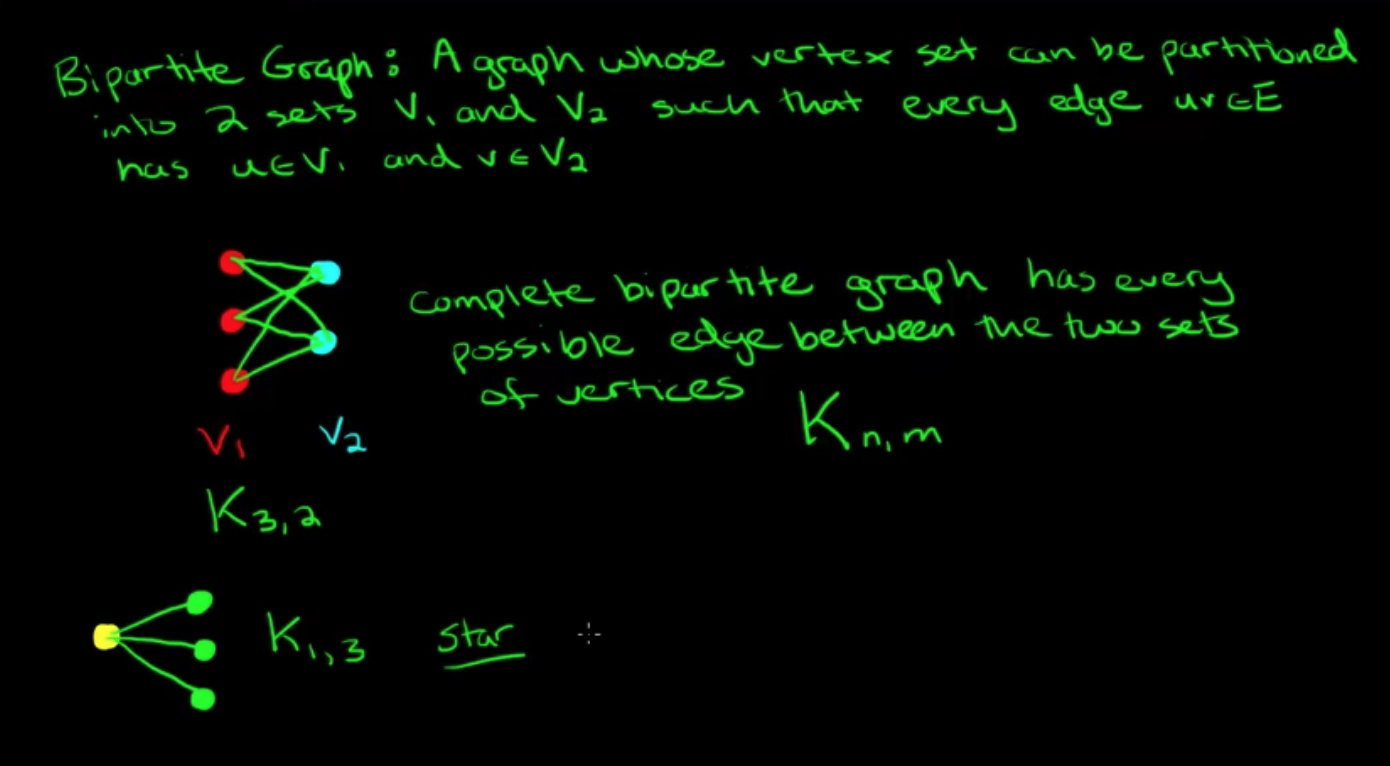 Bipartite Graph: A graph whose vertex set can be partitioned
into 2 sets V₁ and V₂ such that every edge uv∈E
has u∈V₁ and v∈V₂
complete bipartite graph has every
possible edge between the two sets
of vertices
K n,m
V₁ V₂
K 3,2
K 1,3 star